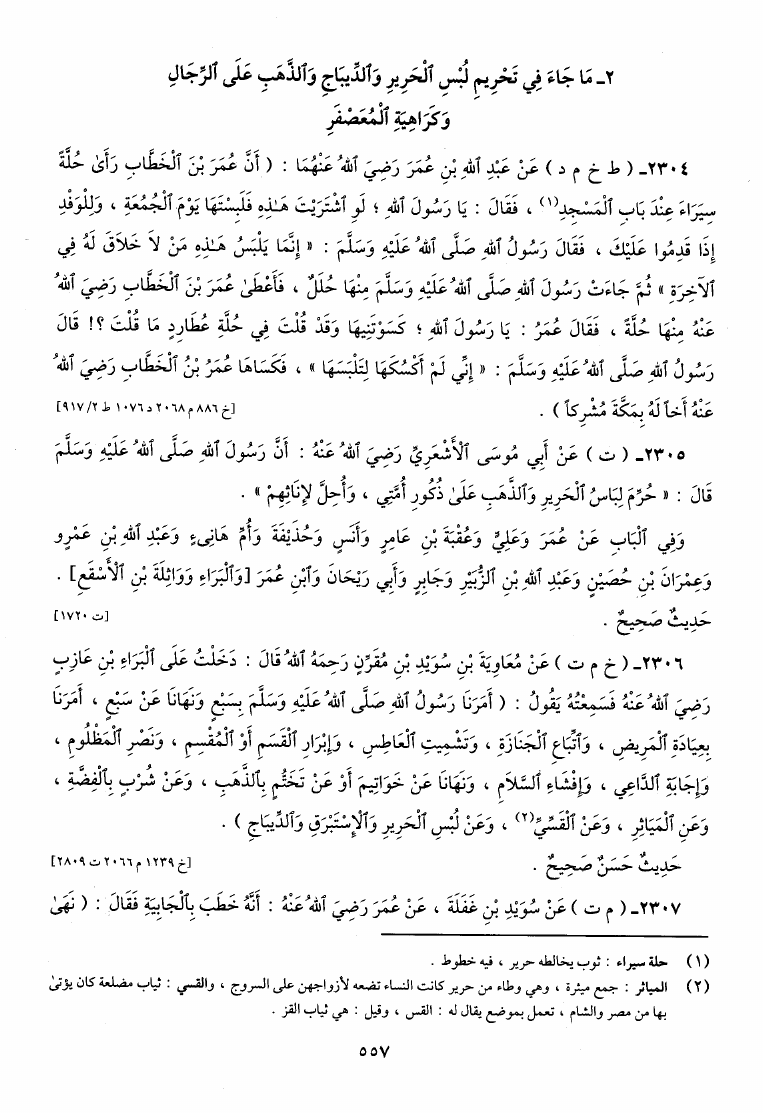 ٢ـ مَا جَاءَ فِي تَحْرِيمِ لُبْسِ ٱلْحَرِيرِ وَٱلدِّيبَاجِ وَٱلذَّهَبِ عَلَى ٱلرِّجَالِ
وَكَرَاهِيَةِ ٱلْمُعَصْفَرِ
٢٣٠٤ـ ( ط خ م د ) عَنْ عَبْدِ ٱللهِ بْنِ عُمَرَ رَضِيَ ٱللهُ عَنْهُمَا : ( أَنَّ عُمَرَ بْنَ ٱلْخَطَّابِ رَأَىٰ حُلَّةً
سِيَرَاءَ عِنْدَ بَابِ ٱلْمَسْجِدِ(١) ، فَقَالَ : يَا رَسُولَ ٱللهِ ؛ لَوِ ٱشْتَرَيْتَ هَـٰذِهِ فَلَبِسْتَهَا يَوْمَ ٱلْجُمُعَةِ ، وَلِلْوَفْدِ
إِذَا قَدِمُوا عَلَيْكَ ، فَقَالَ رَسُولُ ٱللهِ صَلَّى ٱللهُ عَلَيْهِ وَسَلَّمَ : « إِنَّمَا يَلْبَسُ هَـٰذِهِ مَنْ لاَ خَلاَقَ لَهُ فِي
ٱلآخِرَةِ » ثُمَّ جَاءَتْ رَسُولَ ٱللهِ صَلَّى ٱللهُ عَلَيْهِ وَسَلَّمَ مِنْهَا حُلَلٌ ، فَأَعْطَىٰ عُمَرَ بْنَ ٱلْخَطَّابِ رَضِيَ ٱللهُ
عَنْهُ مِنْهَا حُلَّةً ، فَقَالَ عُمَرُ : يَا رَسُولَ ٱللهِ ؛ كَسَوْتَنِيهَا وَقَدْ قُلْتَ فِي حُلَّةِ عُطَارِدٍ مَا قُلْتَ ؟! قَالَ
رَسُولُ ٱللهِ صَلَّى ٱللهُ عَلَيْهِ وَسَلَّمَ : « إِنِّي لَمْ أَكْسُكَهَا لِتَلْبَسَهَا » ، فَكَسَاهَا عُمَرُ بْنُ ٱلْخَطَّابِ رَضِيَ ٱللهُ
عَنْهُ أَخاً لَهُ بِمَكَّةَ مُشْرِكاً ) . [خ ٨٨٦ م ٢٠٦٨ د ١٠٧٦ ط ٩١٧/٢]
٢٣٠٥ـ ( ت ) عَنْ أَبِي مُوسَى ٱلأَشْعَرِيِّ رَضِيَ ٱللهُ عَنْهُ : أَنَّ رَسُولَ ٱللهِ صَلَّى ٱللهُ عَلَيْهِ وَسَلَّمَ
قَالَ : « حُرِّمَ لِبَاسُ ٱلْحَرِيرِ وَٱلذَّهَبِ عَلَىٰ ذُكُورِ أُمَّتِي ، وَأُحِلَّ لِإِنَاثِهِمْ » .
وَفِي ٱلْبَابِ عَنْ عُمَرَ وَعَلِيٍّ وَعُقْبَةَ بْنِ عَامِرٍ وَأَنَسٍ وَحُذَيْفَةَ وَأُمِّ هَانِىءٍ وَعَبْدِ ٱللهِ بْنِ عَمْرٍو
وَعِمْرَانَ بْنِ حُصَيْنٍ وَعَبْدِ ٱللهِ بْنِ ٱلزُّبَيْرِ وَجَابِرٍ وَأَبِي رَيْحَانَ وَٱبْنِ عُمَرَ [وَٱلْبَرَاءِ وَوَاثِلَةَ بْنِ ٱلأَسْقَعِ] .
حَدِيثٌ صَحِيحٌ . [ت ١٧٢٠]
٢٣٠٦ـ ( خ م ت ) عَنْ مُعَاوِيَةَ بْنِ سُوَيْدِ بْنِ مُقَرِّنٍ رَحِمَهُ ٱللهُ قَالَ : دَخَلْتُ عَلَى ٱلْبَرَاءِ بْنِ عَازِبٍ
رَضِيَ ٱللهُ عَنْهُ فَسَمِعْتُهُ يَقُولُ : ( أَمَرَنَا رَسُولُ ٱللهِ صَلَّى ٱللهُ عَلَيْهِ وَسَلَّمَ بِسَبْعٍ وَنَهَانَا عَنْ سَبْعٍ ، أَمَرَنَا
بِعِيَادَةِ ٱلْمَرِيضِ ، وَٱتِّبَاعِ ٱلْجَنَازَةِ ، وَتَشْمِيتِ ٱلْعَاطِسِ ، وَإِبْرَارِ ٱلْقَسَمِ أَوْ ٱلْمُقْسِمِ ، وَنَصْرِ ٱلْمَظْلُومِ ،
وَإِجَابَةِ ٱلدَّاعِي ، وَإِفْشَاءِ ٱلسَّلاَمِ ، وَنَهَانَا عَنْ خَوَاتِيمَ أَوْ عَنْ تَخَتُّمٍ بِٱلذَّهَبِ ، وَعَنْ شُرْبٍ بِٱلْفِضَّةِ ،
وَعَنِ ٱلْمَيَاثِرِ ، وَعَنِ ٱلْقَسِّيِّ(٢) ، وَعَنْ لُبْسِ ٱلْحَرِيرِ وَٱلإِسْتَبْرَقِ وَٱلدِّيبَاجِ ) .
حَدِيثٌ حَسَنٌ صَحِيحٌ . [خ ١٢٣٩ م ٢٠٦٦ ت ٢٨٠٩]
٢٣٠٧ـ ( م ت ) عَنْ سُوَيْدِ بْنِ غَفَلَةَ ، عَنْ عُمَرَ رَضِيَ ٱللهُ عَنْهُ : أَنَّهُ خَطَبَ بِٱلْجَابِيَةِ فَقَالَ : ( نَهَىٰ
(١) حلة سيراء : ثوب يخالطه حرير ، فيه خطوط .
(٢) المياثر : جمع ميثرة ، وهي وطاء من حرير كانت النساء تضعه لأزواجهن على السروج ، والقسي : ثياب مضلعة كان يؤتىٰ
بها من مصر والشام ، تعمل بموضع يقال له : القس ، وقيل : هي ثياب القز .
٥٥٧